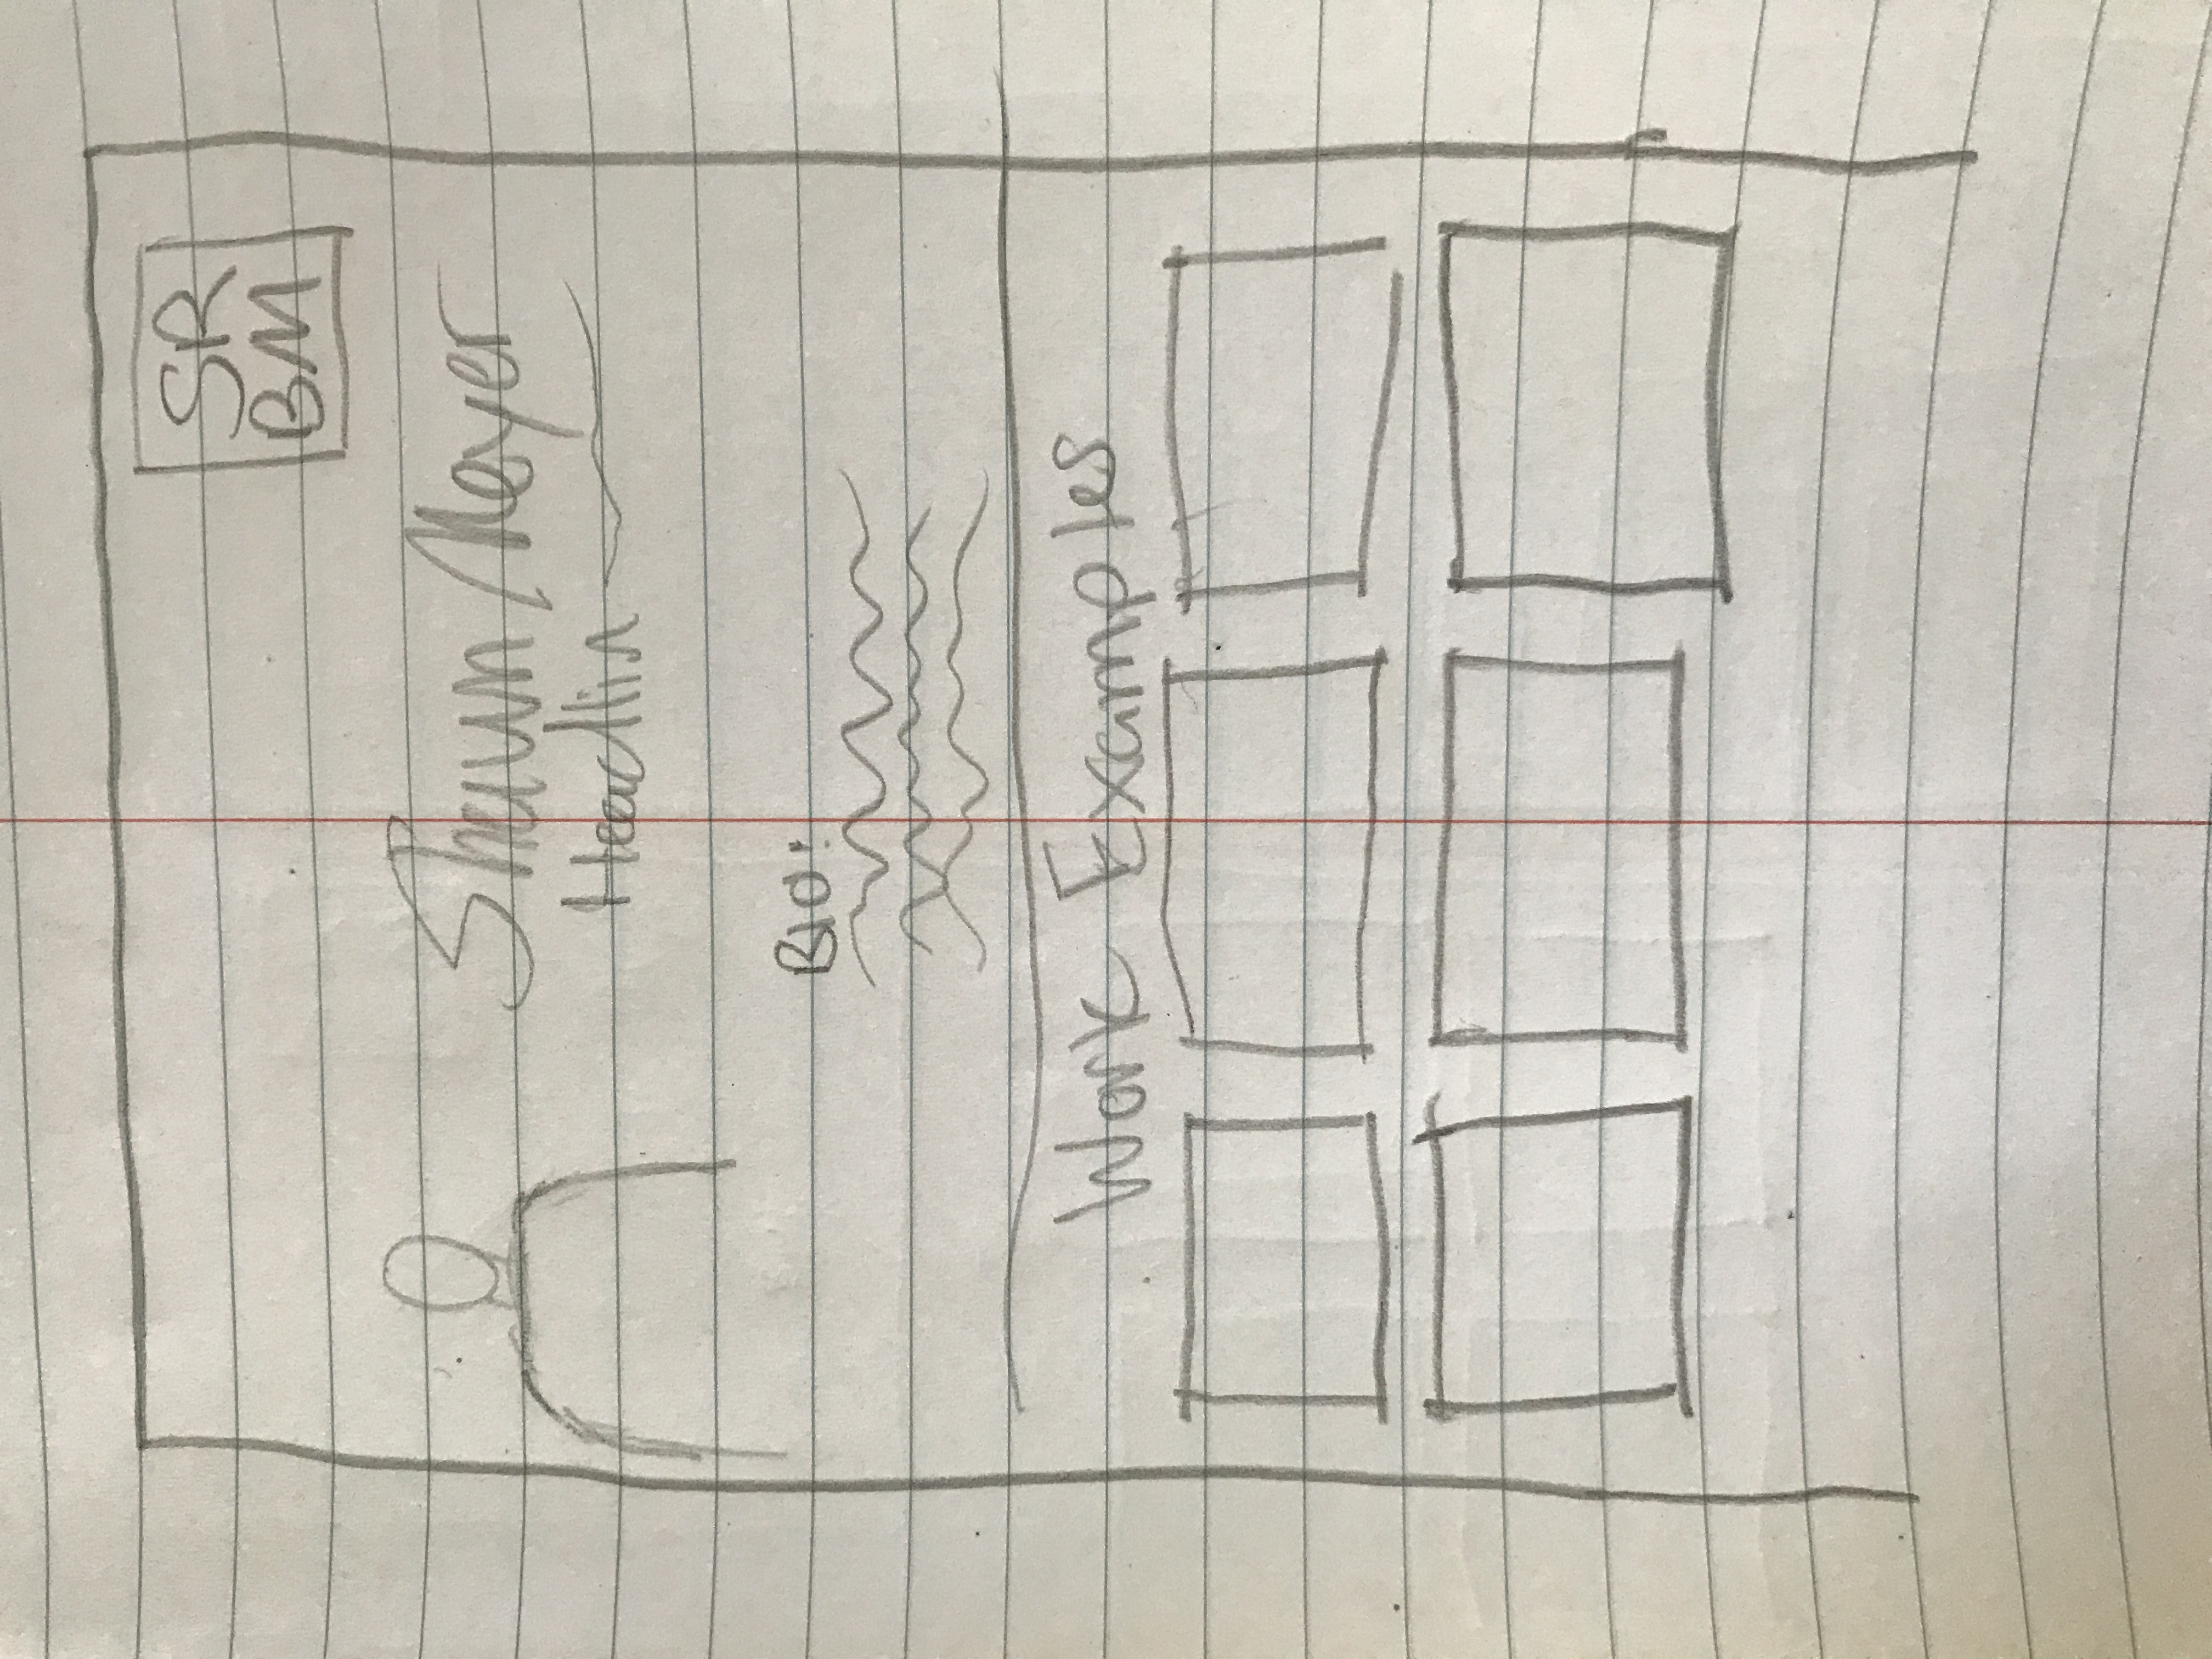 SR
BM
Shawn Meyer
Headlin
BIO:
Work Examples